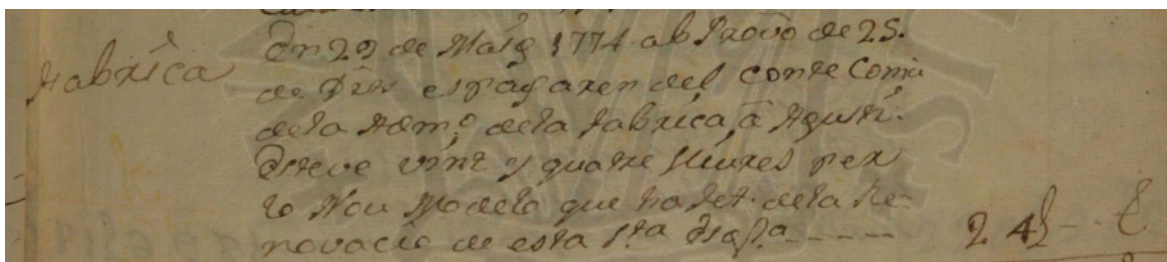 Fabrica
En 29 de Maig 1774 ab Provó de 25.
de dits es pagaren del conte Comu
de la Admó. de la fabrica, á Agustí
Esteve vint y quatre lliures per
lo Nou Modelo que ha fet de la Re-
novació de esta Sta Isglª ---- 24£ -- £